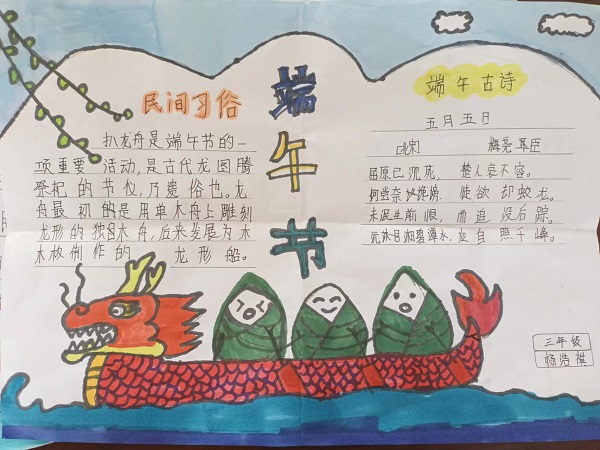 民间习俗
扒龙舟是端午节的一
项重要活动,是古代龙图腾
祭祀的节仪,乃遗俗也。龙
舟最初的是用单木舟上雕刻
龙形的独木舟,后来发展为木
木板制作的 龙形船。
端午节
端午古诗
五月五日
[北宋] 梅尧臣
屈原已沉死, 楚人哀不容。
何尝奈谗谤, 徒欲却蛟龙。
未泯生前恨, 而追没后踪。
湘碧潭水,应自照千峰。
三年级
杨浩祺